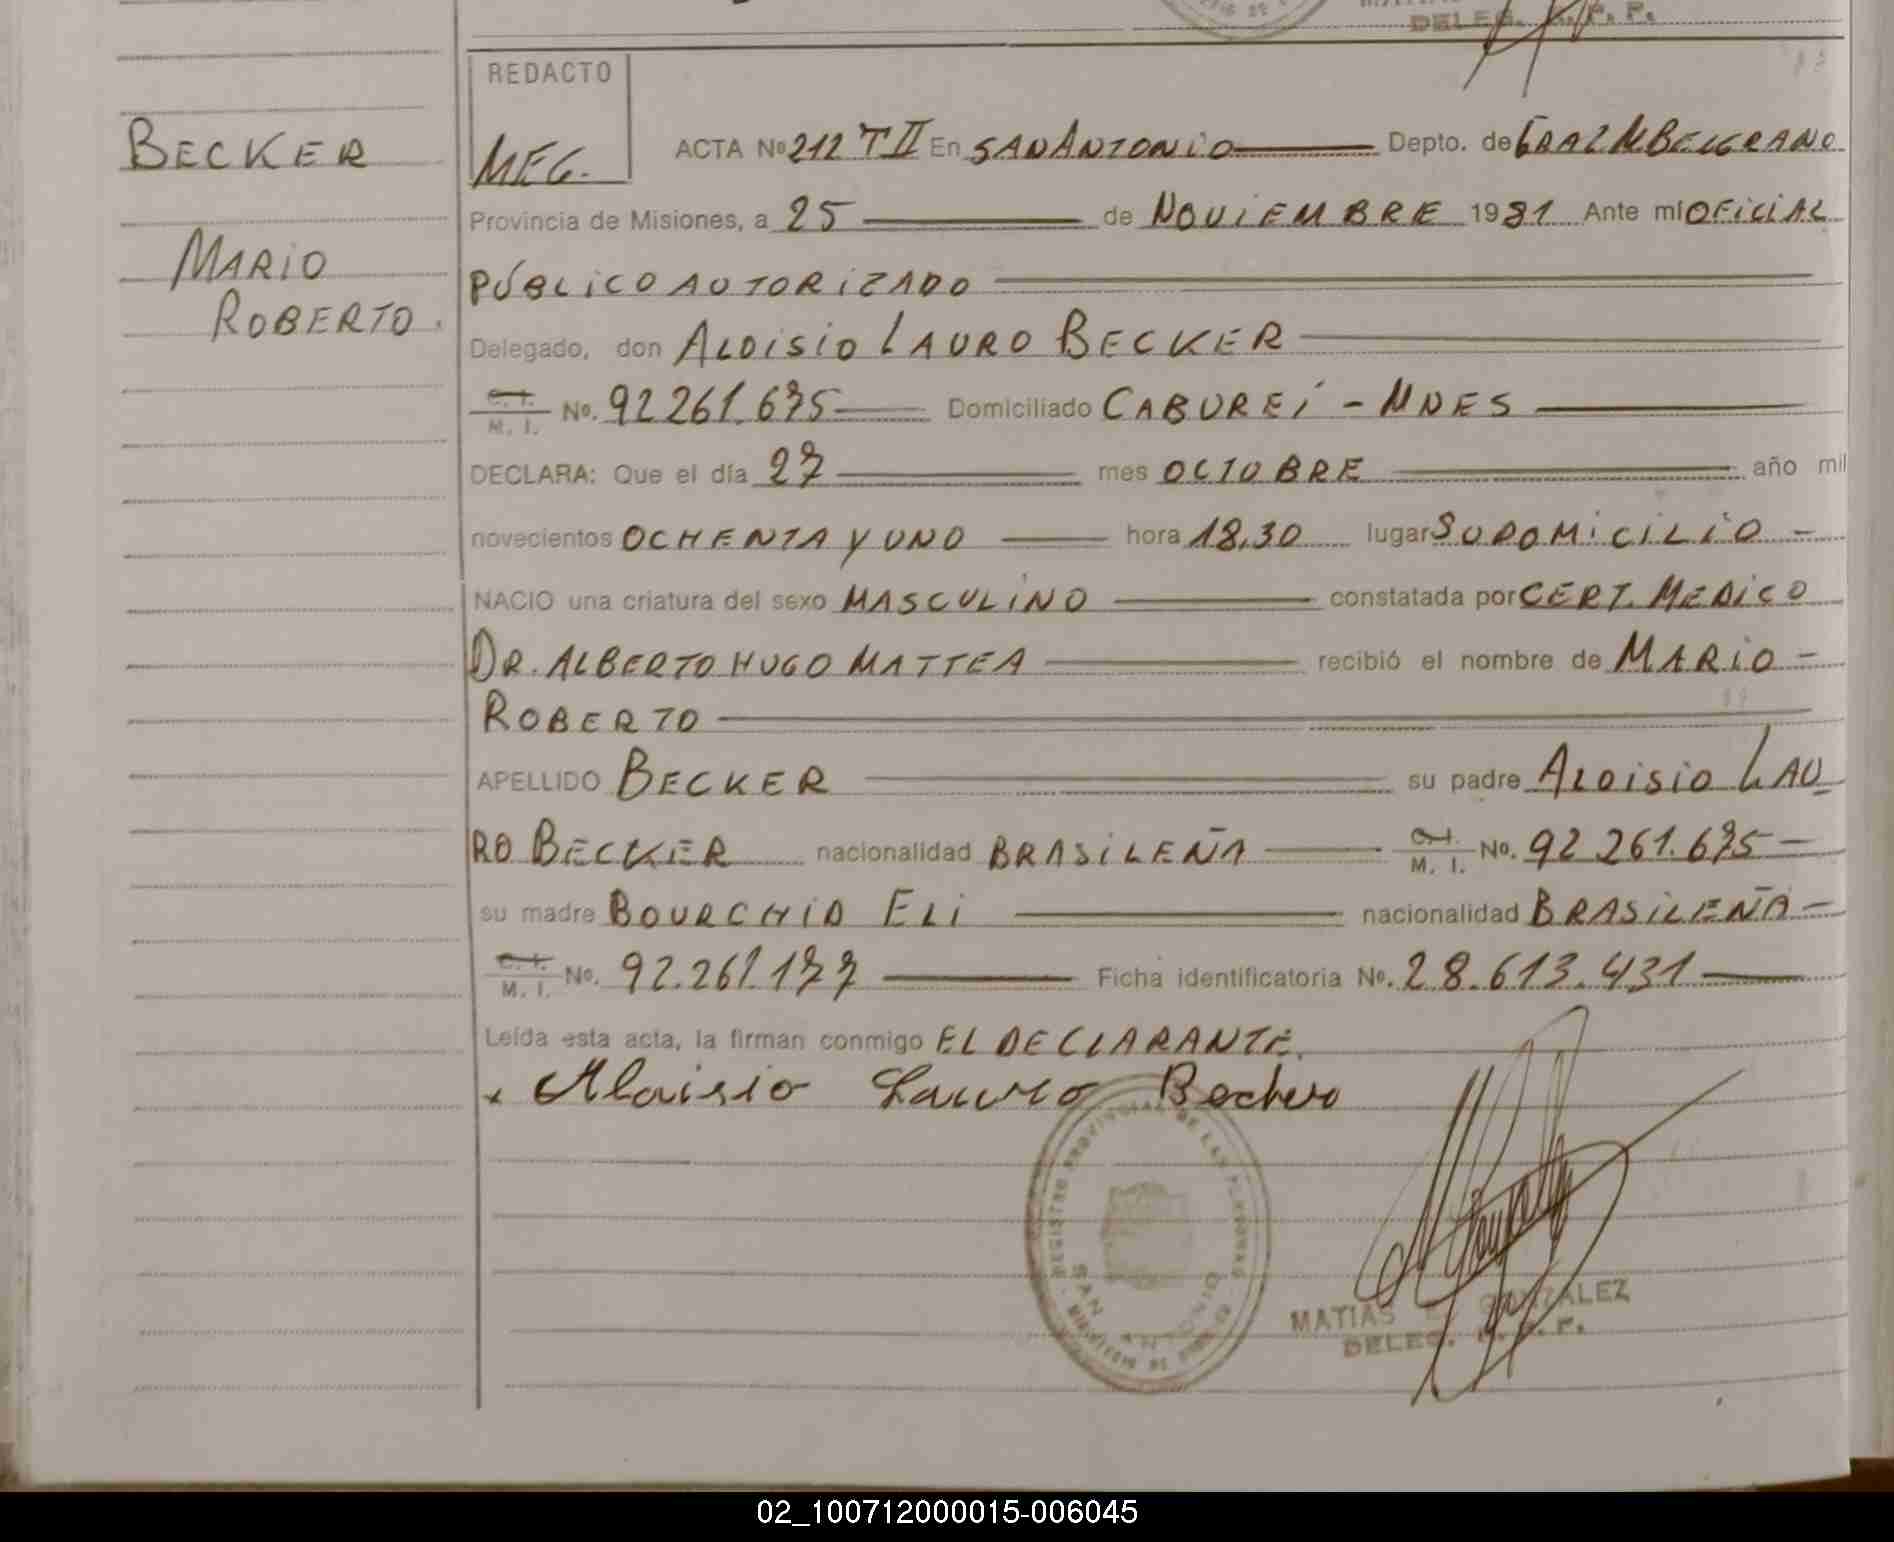 DELEG. R. P. P.
REDACTO
MEG.
BECKER
MARIO
ROBERTO.
ACTA Nº 212 T II En SAN ANTONIO Depto. de GRAL M BELGRANO
Provincia de Misiones, a 25 de NOVIEMBRE 1981 Ante mí OFICIAL
PÚBLICO AUTORIZADO
Delegado, don ALOISIO LAURO BECKER
C. I. M. I. Nº. 92 261.675 Domiciliado CABUREI - MNES
DECLARA: Que el día 27 mes OCTOBRE año mil
novecientos OCHENTA Y UNO hora 18,30 lugar SU DOMICILIO -
NACIO una criatura del sexo MASCULINO constatada por CERT. MEDICO
DR. ALBERTO HUGO MATTEA recibió el nombre de MARIO -
ROBERTO
APELLIDO BECKER su padre ALOISIO LAU
RO BECKER nacionalidad BRASILEÑA C. I. M. I. Nº. 92 261.675 -
su madre BOURCHID ELI nacionalidad BRASILEÑA -
C. I. M. I. Nº. 92.261.177 Ficha identificatoria Nº. 28.613.431
Leída esta acta, la firman conmigo EL DECLARANTE.
x Aloisio Lauro Becker
REGISTRO PROVINCIAL DE LAS PERSONAS
SAN ANTONIO
MATIAS GONZALEZ
DELEG. R. P. P.
02_100712000015-006045